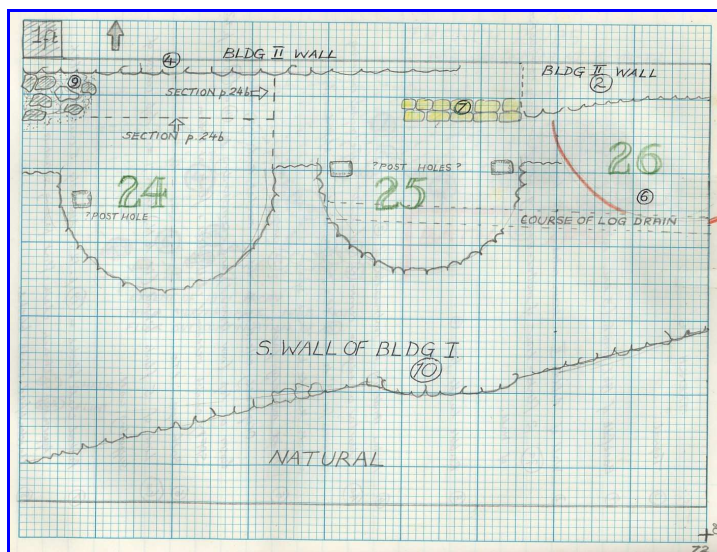 1ft
④
BLDG II WALL
BLDG II WALL
②
⑨
SECTION p.24b
⑦
SECTION p.24b
26
?POST HOLES?
24
25
⑥
?POST HOLE
COURSE OF LOG DRAIN
S. WALL OF BLDG I.
⑩
NATURAL